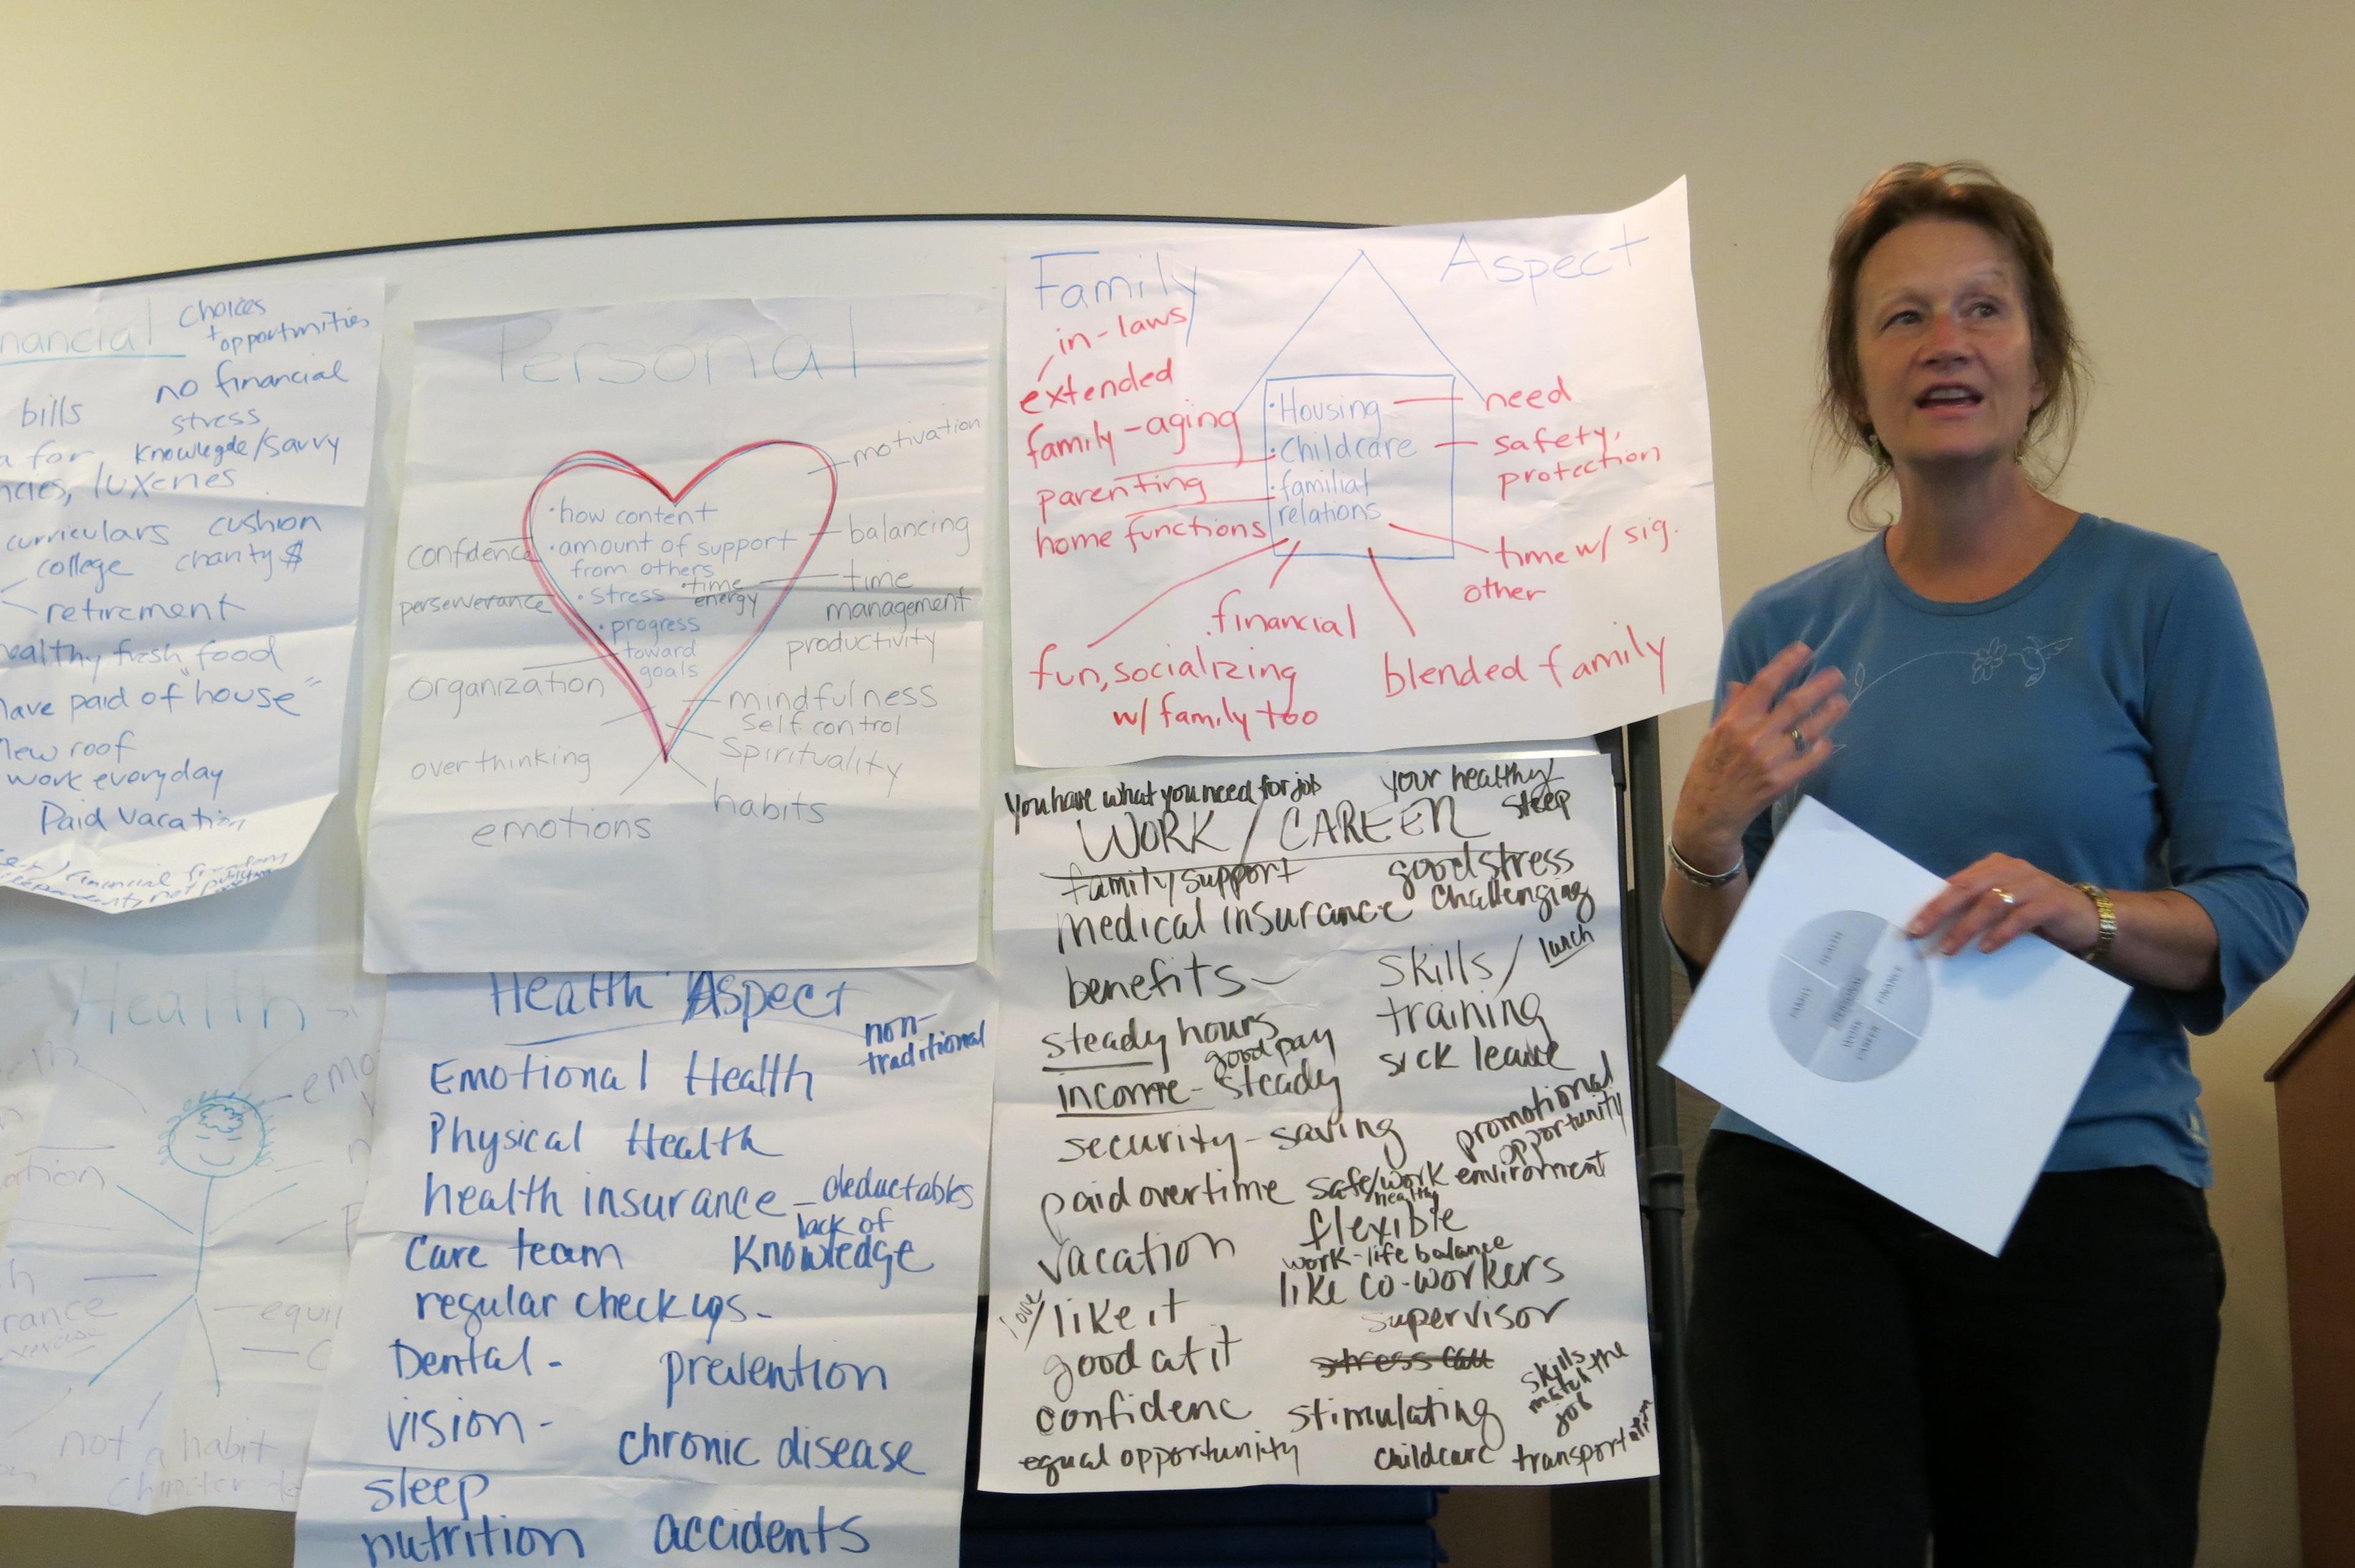 Financial
choices
+ opportunities
bills
no financial
stress
for
knowlegde/savvy
luxeries
curriculars
cushion
college
charity $
retirement
healthy fresh food
have paid of "house"
new roof
work everyday
Paid vacation
Personal
motivation
• how content
• amount of support
from others
• stress
• time
energy
• progress
toward
goals
confidence
perserverance
organization
over thinking
emotions
balancing
time
management
productivity
mindfulness
self control
spirituality
habits
Family Aspect
in-laws
extended
family-aging
parenting
home functions
• Housing
• Childcare
• familial
relations
need
safety,
protection
time w/ sig.
other
financial
fun, socializing
w/ family too
blended family
Health
emo
equi
not a habit
Health Aspect
non-
traditional
Emotional Health
Physical Health
health insurance - deductables
Care team
lack of
Knowledge
regular checkups-
Dental - prevention
vision -
chronic disease
sleep
nutrition accidents
You have what you need for job
your healthy/
sleep
WORK / CAREER
family support
good stress
medical insurance
challenging
benefits
skills/
lunch
training
steady hours
good pay
sick leave
income - steady
promotional
opportunity
security - saving
paid overtime
safe/work environment
healthy
vacation
flexible
work-life balance
like co-workers
love/like it
supervisor
good at it
confidenc
stimulating
skills
match the
job
equal opportunity
childcare
transportation
HEALTH
FAMILY
PERSONAL
FINANCE
WORK
CAREER